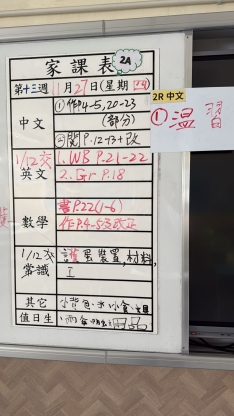 家課表 2A
第十三週 11月27日(星期四)
中文
①作P4-5,20-23
(部分)
②閱P.12-13+改
2R 中文
①溫習
1/12交
英文
1. WB P.21-22
2. Gr P.18
數學
書P.22(1-6)
作P.4-5及改正
1/12交
常識
護蛋裝置,材料,
工
其它
小背包、水、小食、
值日生